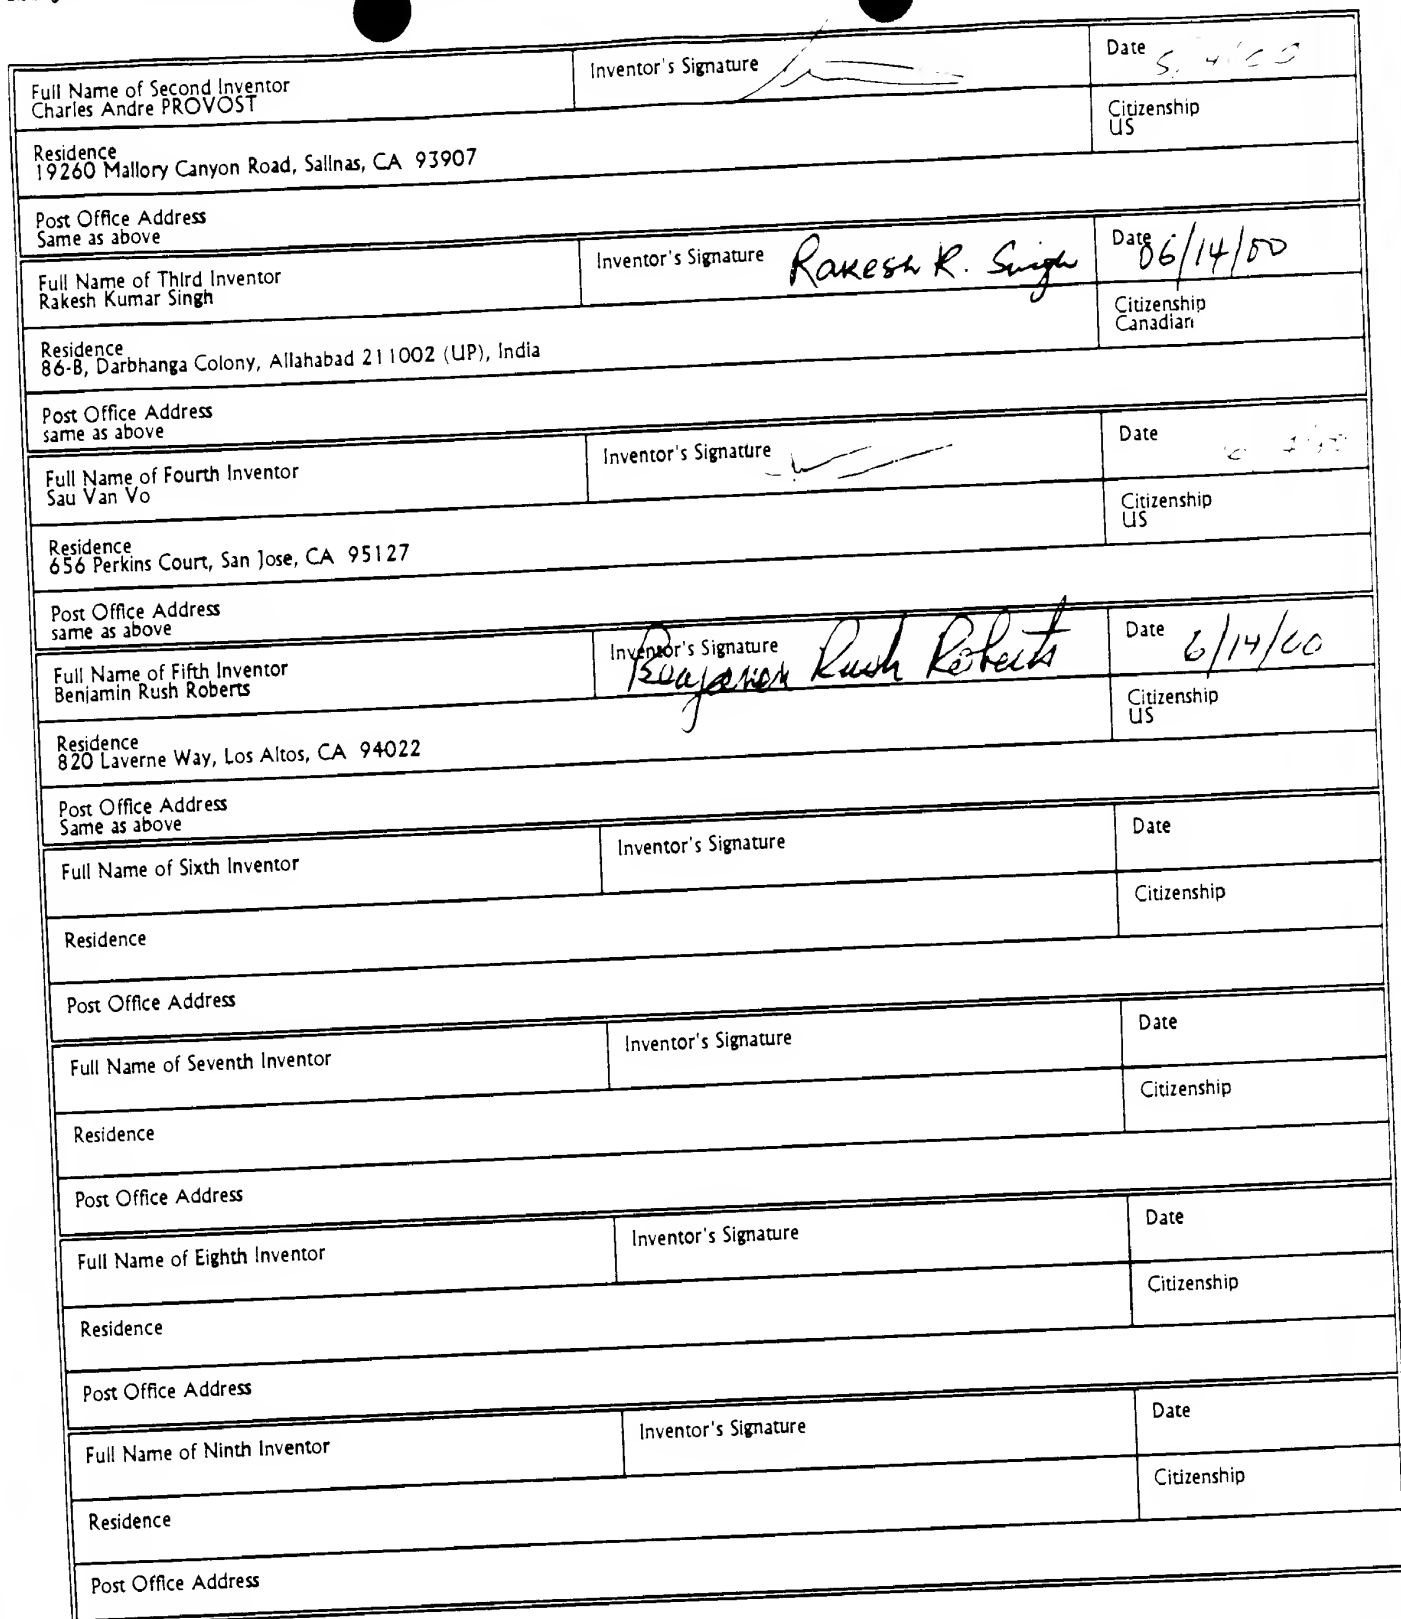 Full Name of Second Inventor
Charles Andre PROVOST
Inventor's Signature
Date
Citizenship
US
Residence
19260 Mallory Canyon Road, Salinas, CA 93907
Post Office Address
Same as above
Full Name of Third Inventor
Rakesh Kumar Singh
Inventor's Signature Rakesh K. Singh
Date 06/14/00
Citizenship
Canadian
Residence
86-B, Darbhanga Colony, Allahabad 211002 (UP), India
Post Office Address
same as above
Full Name of Fourth Inventor
Sau Van Vo
Inventor's Signature
Date
Citizenship
US
Residence
656 Perkins Court, San Jose, CA 95127
Post Office Address
same as above
Full Name of Fifth Inventor
Benjamin Rush Roberts
Inventor's Signature
Benjamin Rush Roberts
Date 6/14/00
Citizenship
US
Residence
820 Laverne Way, Los Altos, CA 94022
Post Office Address
Same as above
Full Name of Sixth Inventor
Inventor's Signature
Date
Citizenship
Residence
Post Office Address
Full Name of Seventh Inventor
Inventor's Signature
Date
Citizenship
Residence
Post Office Address
Full Name of Eighth Inventor
Inventor's Signature
Date
Citizenship
Residence
Post Office Address
Full Name of Ninth Inventor
Inventor's Signature
Date
Citizenship
Residence
Post Office Address